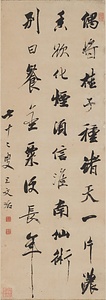 偶將桂子種諸天一片濃
香欲化煙須信淮南仙術
別日餐金粟得長年
七十二叟王文治